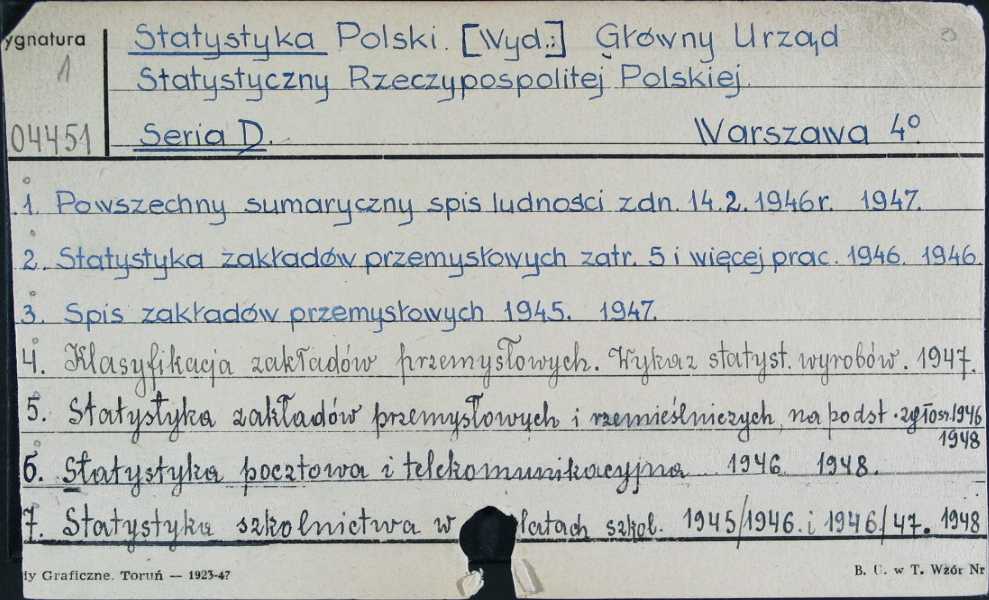 ygnatura
1
04451
Statystyka Polski. [Wyd.:] Główny Urząd
Statystyczny Rzeczypospolitej Polskiej.
Seria D. Warszawa 4°
1. Powszechny sumaryczny spis ludności z dn. 14.2.1946 r. 1947.
2. Statystyka zakładów przemysłowych zatr. 5 i więcej prac. 1946. 1946.
3. Spis zakładów przemysłowych 1945. 1947.
4. Klasyfikacja zakładów przemysłowych. Wykaz statyst. wyrobów. 1947.
5. Statystyka zakładów przemysłowych i rzemieślniczych na podst. zgłosz. 1946
1948
6. Statystyka pocztowa i telekomunikacyjna 1946. 1948.
7. Statystyka szkolnictwa w latach szkol. 1945/1946. i 1946/47. 1948
dy Graficzne. Toruń — 1923-47
B. U. w T. Wzór Nr